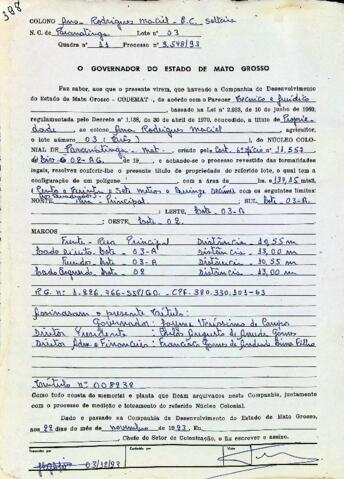 398
COLONO Ana Rodrigues Maciel - B.C. solteira
N. C. de Paranatinga LOTE nº 03
Quadra nº 11 Processo nº 3.548/93
O GOVERNADOR DO ESTADO DE MATO GROSSO
Faz saber, aos que o presente virem, que havendo a Companhia de Desenvolvimento
do Estado de Mato Grosso - CODEMAT -, de acordo com o Parecer Técnico e Jurídico
baseado na Lei nº de 10 de junho de
regulamentada pelo Decreto nº 1.138, de 30 de abril de 1970, concedido, a título de Proprie
dade ao colono Ana Rodrigues Maciel agricultor,
o lote número 03 (Três) do NÚCLEO COLO-
NIAL DE Paranatinga - Mat. criado pelo Cart. 6º ofício nº 11.557
Livro 02-AG. de 19 , e achando-se o processo revestido das formalidades
legais, resolveu conferir-lhe o presente título de propriedade do referido lote, o qual tem a
configuração de um polígono com a área de ha 137,15 m2
(Cento e Trinta e Sete metros e Quinze decím) com os seguintes limites:
NORTE: Rua Principal SUL Lote 03-A
LESTE: Lote 03-A
OESTE: Lote 02.
MARCOS
Frente - Rua Principal Distância - 10,55 m
Lado Direito Lote 03-A Distância - 13,00 m
Fundos - Lote 03-A Distância - 10,55 m
Lado Esquerdo - Lote 02 Distância - 13,00 m
R.G. nº 1.886.766-SSP/GO. - CPF. 380.330.301-63
Assinaram o presente Título:
Governador: Jayme Veríssimo de Campos
Diretor Presidente
Diretor Adm. e Financeiro:
Título nº 008938
Como tudo consta do memorial e planta que ficam arquivados nesta Companhia, juntamente
com o processo de medição e loteamento do referido Núcleo Colonial.
Dado e passado na Companhia de Desenvolvimento do Estado de Mato Grosso,
aos 22 dias do mês de novembro de 1993. Eu
Chefe do Setor de Colonização, o fiz escrever e assino.
03/12/93